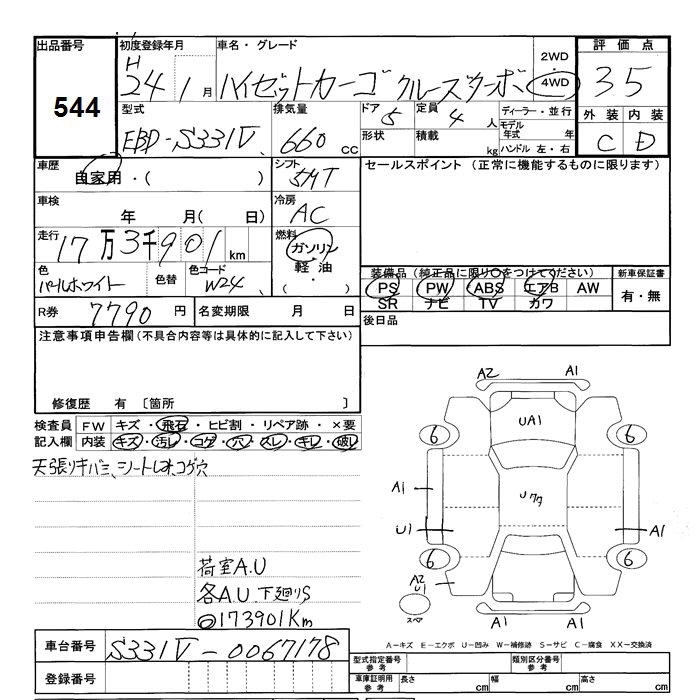 出品番号
544
初度登録年月
H
24年 1月
車名・グレード
ハイゼットカーゴ クルーズターボ
2WD
4WD
評価点
3.5
型式
EBD-S331V
排気量
660 cc
ドア
5
定員
4 人
形状
積載
kg
ディーラー・並行
モデル
年式 年
ハンドル 左・右
外装 内装
C D
車歴
自家用・( )
シフト
5MT
セールスポイント (正常に機能するものに限ります)
車検
年 月( 日)
冷房
AC
走行
17万3千901 km
燃料
ガソリン
軽油
・
( )
色
パールホワイト
色替
色コード
W24
装備品(純正品に限り○をつけてください)
PS PW ABS エアB AW
SR ナビ TV カワ
新車保証書
有・無
R券 7790 円
名変期限 月 日
後日品
注意事項申告欄(不具合内容等は具体的に記入して下さい)
修復歴 有 〔箇所 〕
検査員 FW キズ・飛石・ヒビ割・リペア跡・×要
記入欄 内装 キズ・汚レ・コゲ・穴・スレ・キレ・破レ
天張リキバミ、シートしオ、コゲ穴
荷室A.U
各A.U 下廻りS
◎173901Km
A2 A1
UA1
6 6
A1
Uクタ
U1 A1
6 6
A2
U1
スペア
A1 A1
A-キズ E-エクボ U-凹み W-補修跡 S-サビ C-腐食 XX-交換済
車台番号 S331V-0067178
登録番号
型式指定番号
参考
類別区分番号
参考
車庫証明用
参考
長さ cm 幅 cm 高さ cm